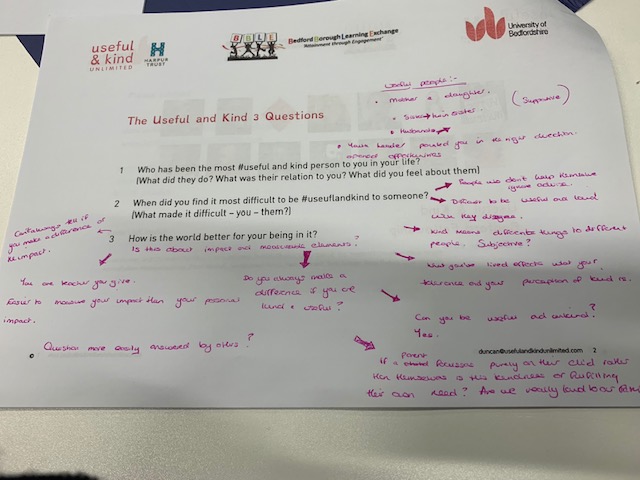 useful
& kind
UNLIMITED
HARPUR
TRUST
BBLE
Bedford Borough Learning Exchange
"Attainment through Engagement"
University of
Bedfordshire
Useful people:-
• Mother & daughter.
(Supportive)
• Sister twin sister.
• Husband
• Youth leader pointed you in the right direction.
opened opportunities
The Useful and Kind 3 Questions
1 Who has been the most #useful and kind person to you in your life?
(What did they do? What was their relation to you? What did you feel about them)
2 When did you find it most difficult to be #useuflandkind to someone?
(What made it difficult – you – them?)
3 How is the world better for your being in it?
Is this about impact and measurable elements?
People who don't help themselves
ignore advice.
Difficult to be useful and kind
with they disagree.
kind means different things to different
people. Subjective?
What you've lived effects what your
tolerance and your perception of kind is.
Can you be useful and unkind?
Yes.
Can't always tell if
you make a difference or
impact.
You are teacher you give.
Easier to measure your impact than your personal
impact.
Do you always make a
difference if you are
kind & useful?
Question more easily answered by others?
duncan@usefulandkindunlimited.com 2
If a parent focussing purely on their child rather
than themselves is this kindness or fulfilling
their own need? Are we really kind to our